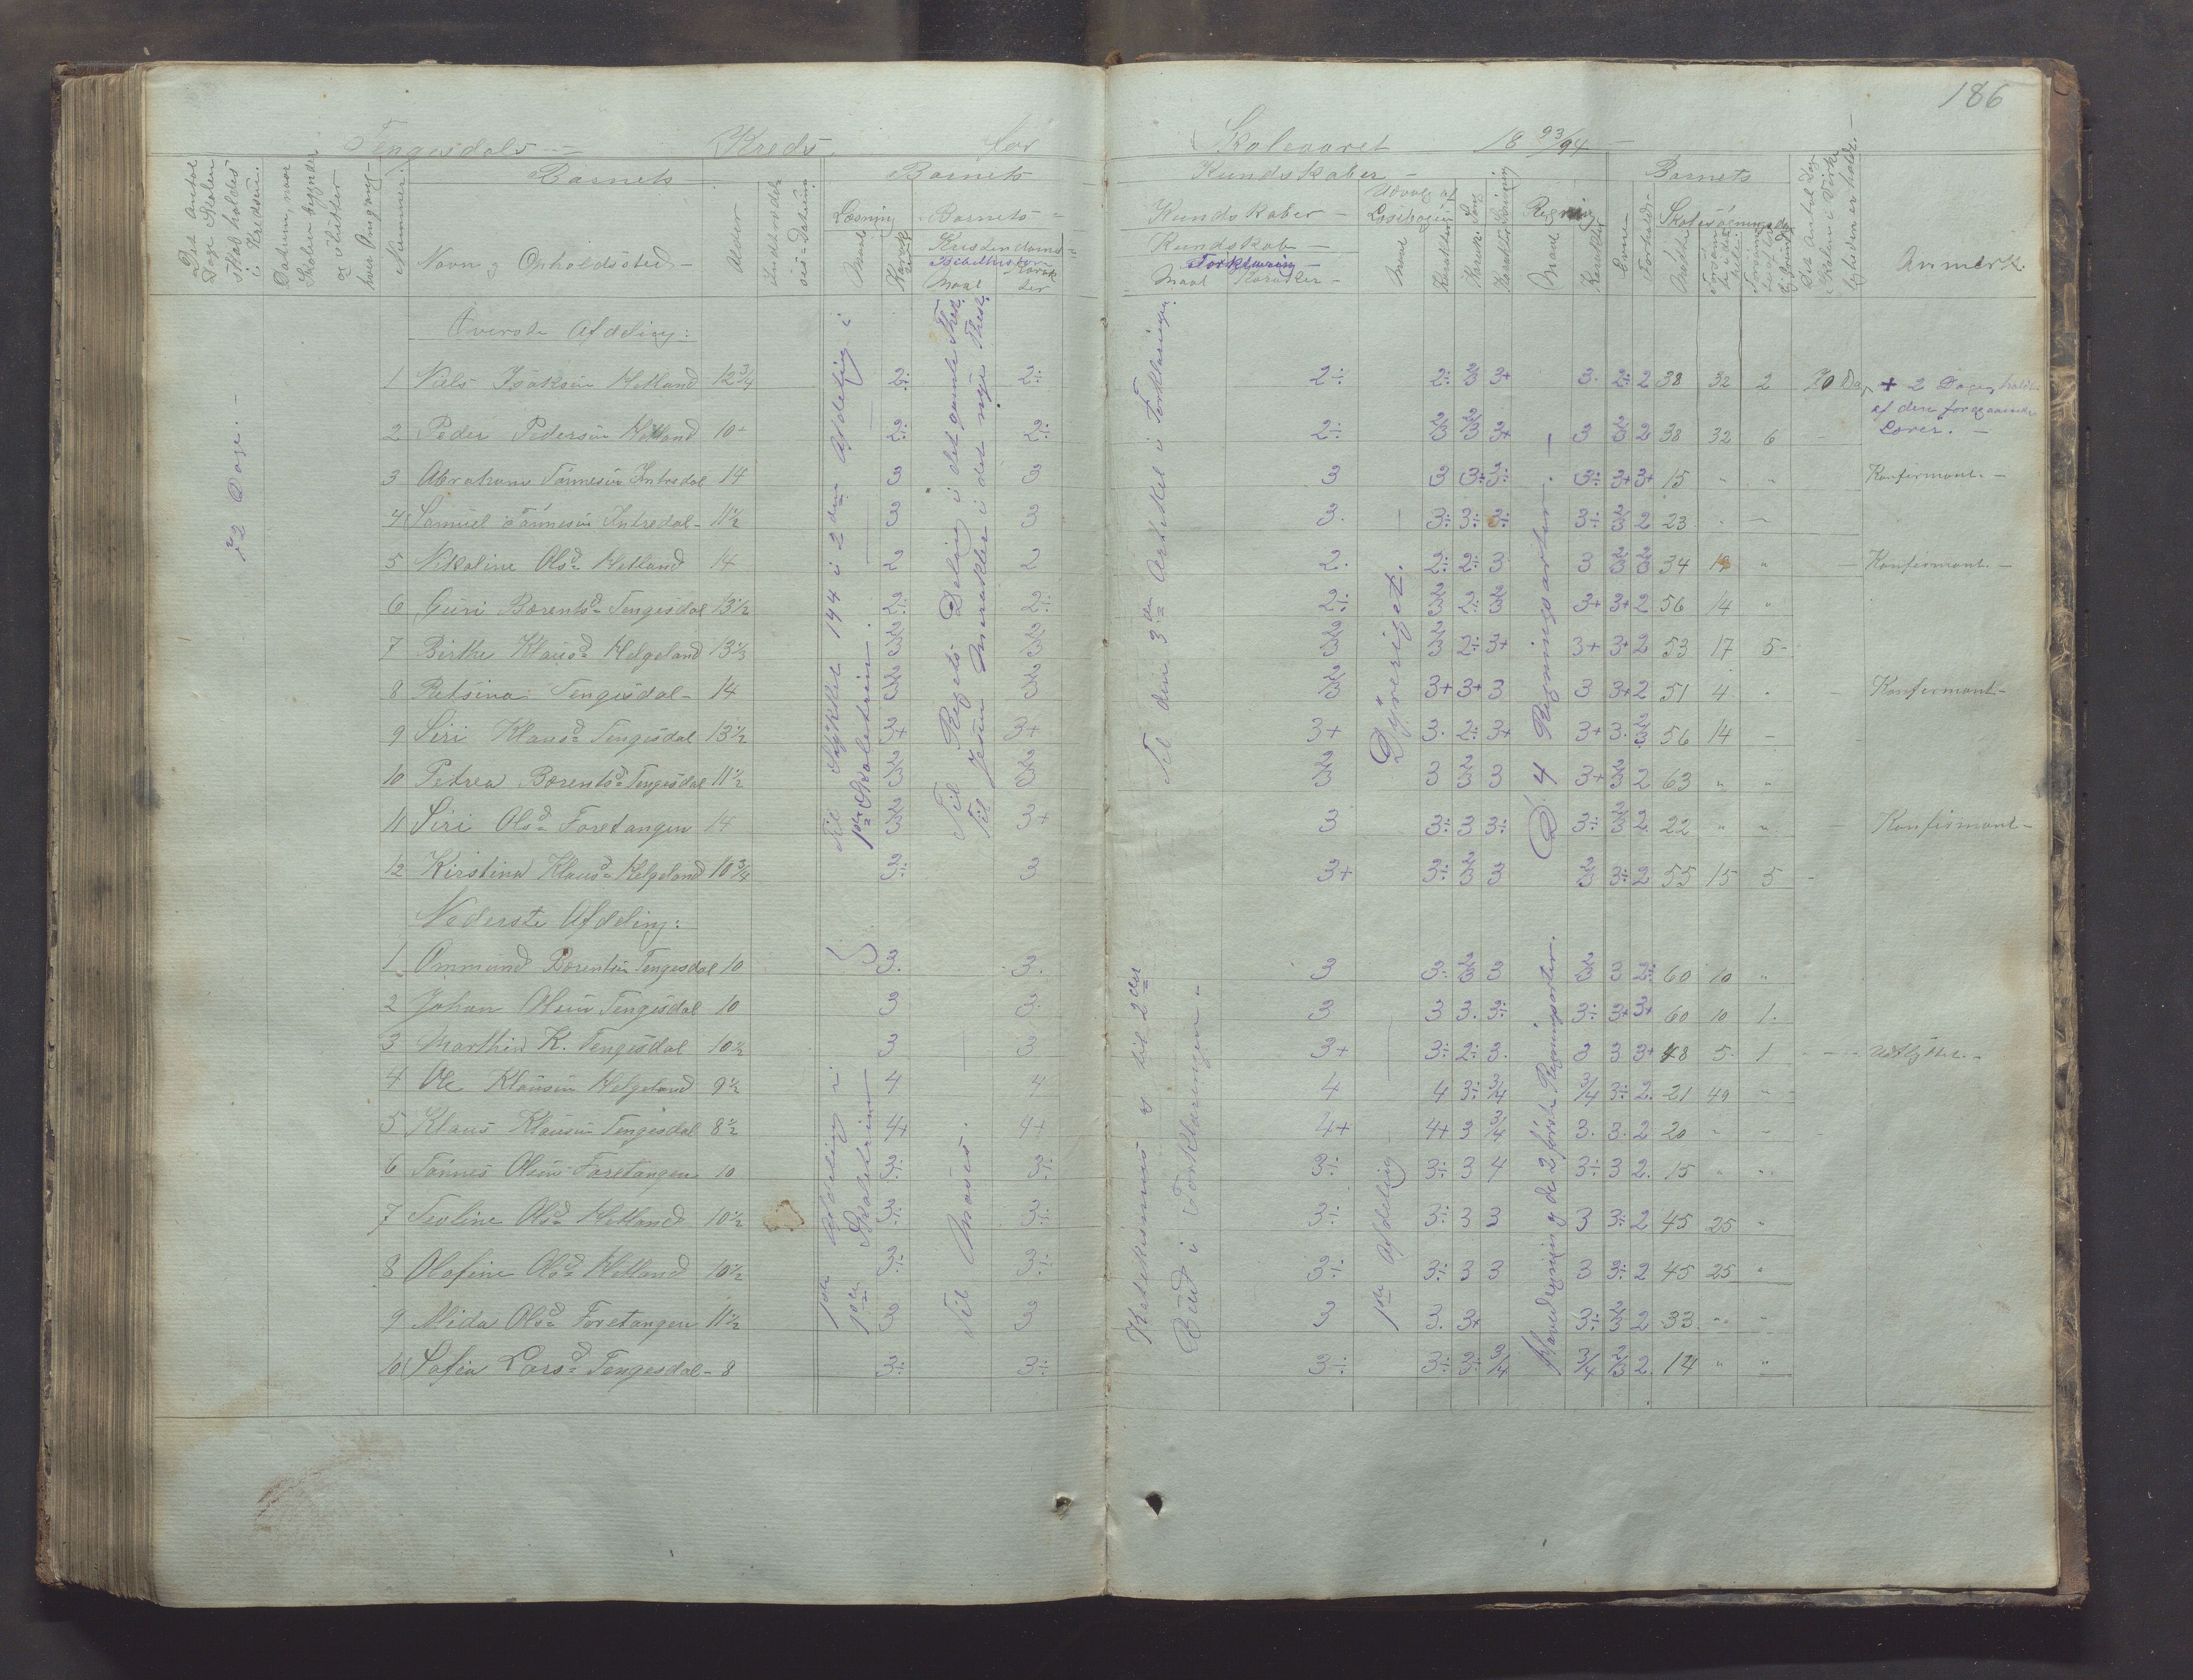 186
Tengesdals Kreds for Skoleaaret 1893/94
Barnets Barnets Kundskaber Barnets
Det Antal Dage Skolen skal holdes i Kredsen.
Datum, naar Skolen begynder og slutter hver Omgang
Nummer.
Navn og Opholdssted
Alder
Indtrædelsesdatum
Læsning
Maal Karakter
Barnets
Kristendoms
Bibelhistorie
Maal Karakter
Kundskaber
Kundskab
Forklaring
Maal Karakter
Udvalg af Læsebogen
Maal Karakter
Sang Karak.
Skrivning Karakter
Regning
Maal Karakter
Evne
Forhold
Skolesøgningsdage
Mødte
Det Antal Dage Skolen i Virkeligheden er holdt.
Anmærk.
Øverste Afdeling:
72 Dage.
1 Niels Isaksen Hetland 12 3/4 2÷ 2÷ 2÷ 2÷ 2/3 3+ 3. 2÷ 2 38 32 2 70 Dag + 2 Dage, holdt
af den foregaaende
Lærer.
2 Peder Pedersen Hetland 10+ 2÷ 2÷ 2÷ 2/3 2/3 3+ 3 2/3 2 38 32 6
3 Abraham Tønnesen Intredal 14 3 3 3 3 3÷ 3÷ 3÷ 3+ 3+ 15 " " Konfirmant.
4 Samuel Tønnesen Intredal 11 1/2 3 3 3. 3÷ 3÷ 3÷ 3÷ 2/3 2 23
5 Nikoline Olsd Hetland 14 2 2 2. 2÷ 2÷ 3 3 2/3 2/3 34 19 " Konfirmant.
6 Guri Børentsd Tengesdal 13 1/2 2÷ 2÷ 2÷ 2/3 2÷ 2/3 3+ 3+ 2 56 14 "
7 Birthe Klausd Helgeland 13 1/3 2/3 2/3 2/3 3 2÷ 3+ 3+ 3+ 2 53 17 5
8 Betsina Tengesdal 14 2/3 2/3 2/3 3+ 3+ 3 3 3+ 2 51 4 " Konfirmant
9 Siri Klausd Tengesdal 13 1/2 3+ 3+ 3+ 3. 2÷ 3+ 3+ 3. 2/3 56 14
10 Petrea Børentsd Tengesdal 11 1/2 2/3 2/3 2/3 3 2/3 3 3+ 2/3 2 63 " "
11 Siri Olsd Foretangen 14 2/3 3+ 3 3÷ 3 3÷ 3÷ 2/3 2 22 " " Konfirmant
12 Kirstina Klausd Helgeland 10 3/4 3÷ 3 3+ 3÷ 2/3 3 2/3 3÷ 2 55 15 5
Til Stykket 144 i 2den Afdeling i
1ste Skoletrin.
Til Rigets Deling i det gamle Test.
Til Jesu Mirakler i det nye Test.
Til den 3die Artikel i Forklaringen.
Dyreriget.
D. 4 Regningsarter.
Nederste Afdeling:
1 Ommund Børentsen Tengesdal 10 3. 3. 3 3÷ 2/3 3 2/3 3 2÷ 60 10 "
2 Johan Olsen Tengesdal 10 3 3. 3 3 3. 3÷ 3÷ 3+ 3+ 60 10 1.
3 Marthin K. Tengesdal 10 1/2 3 3 3+ 3÷ 2÷ 3. 3 3 3+ 48 5 1 Udflyttet.
4 Ole Klausen Helgeland 9 1/2 4 4 4 4 3÷ 3/4 3/4 3÷ 2. 21 49 "
5 Klaus Klausen Tengesdal 8 1/2 4+ 4+ 4+ 4+ 3 3/4 3. 3. 2 20
6 Tønnes Olsen Foretangen 10 3÷ 3÷ 3÷ 3÷ 3 4 3÷ 3 2. 15 " "
7 Sevline Olsd Hetland 10 1/2 3÷ 3÷ 3÷ 3÷ 3 3 3 3÷ 2 45 25 "
8 Olafine Olsd Hetland 10 1/2 3÷ 3÷ 3÷ 3÷ 3 3 3 3÷ 2 45 25 "
9 Alida Olsd Foretangen 11 1/2 3 3 3 3. 3+ 3÷ 2/3 2 33 " "
10 Sofia Larsd Tengesdal 8 3÷ 3÷ 3÷ 3÷ 3÷ 3/4 3/4 2/3 2. 14 " "
1ste Afdeling i
1ste Skoletrin
Til Moses.
Katekismus og til 2det
Bud i Forklaringen
1ste Afdeling
Hovedregning og de 2 første Regningsarter.